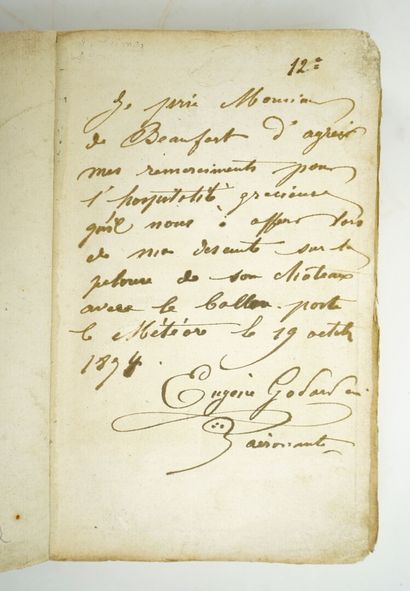 12=
Je prie Monsieur
de Beaufort d'agréer
mes remerciments pour
l'hospitalité gracieuse
qu'il nous à offert lors
de ma descente sur la
pelouse de son château
avec le ballon poste
le Météore le 19 octob
1874.
Eugène Godard
aéronaute